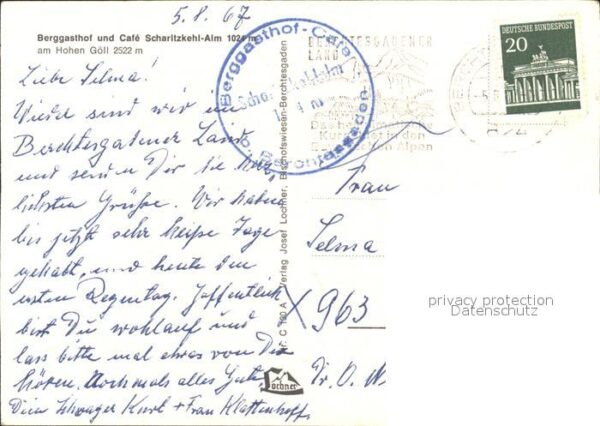 5.8.67
Berggasthof und Café Scharitzkehl-Alm 1024 m
am Hohen Göll 2522 m
Liebe Selma!
Wieder sind wir im
Berchtesgadener Land
und senden Dir die herz-
lichsten Grüße. Wir haben
bis jetzt sehr heiße Tage
gehabt, und heute den
ersten Regentag. Hoffentlich
bist Du wohlauf und
lass bitte mal etwas von Dir
hören. Nochmals alles Gute,
Dein Schwager Kurt + Frau Klattenhoff,
Berggasthof-Café
Scharitzkehlalm
b. Berchtesgaden
BERCHTESGADENER
LAND
in den
Alpen
DEUTSCHE BUNDESPOST
20
Verlag Josef Lochner, Bischofswiesen-Berchtesgaden
Lochner
Frau
Selma
X 963
Dr. O. N
privacy protection
Datenschutz